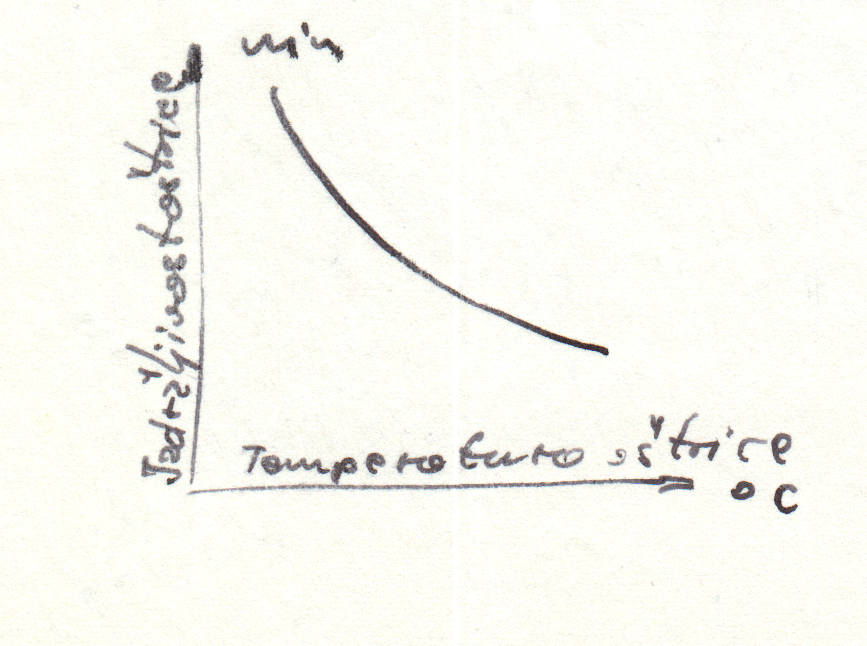 min
Izdržljivost oštrice
Temperatura oštrice
°C